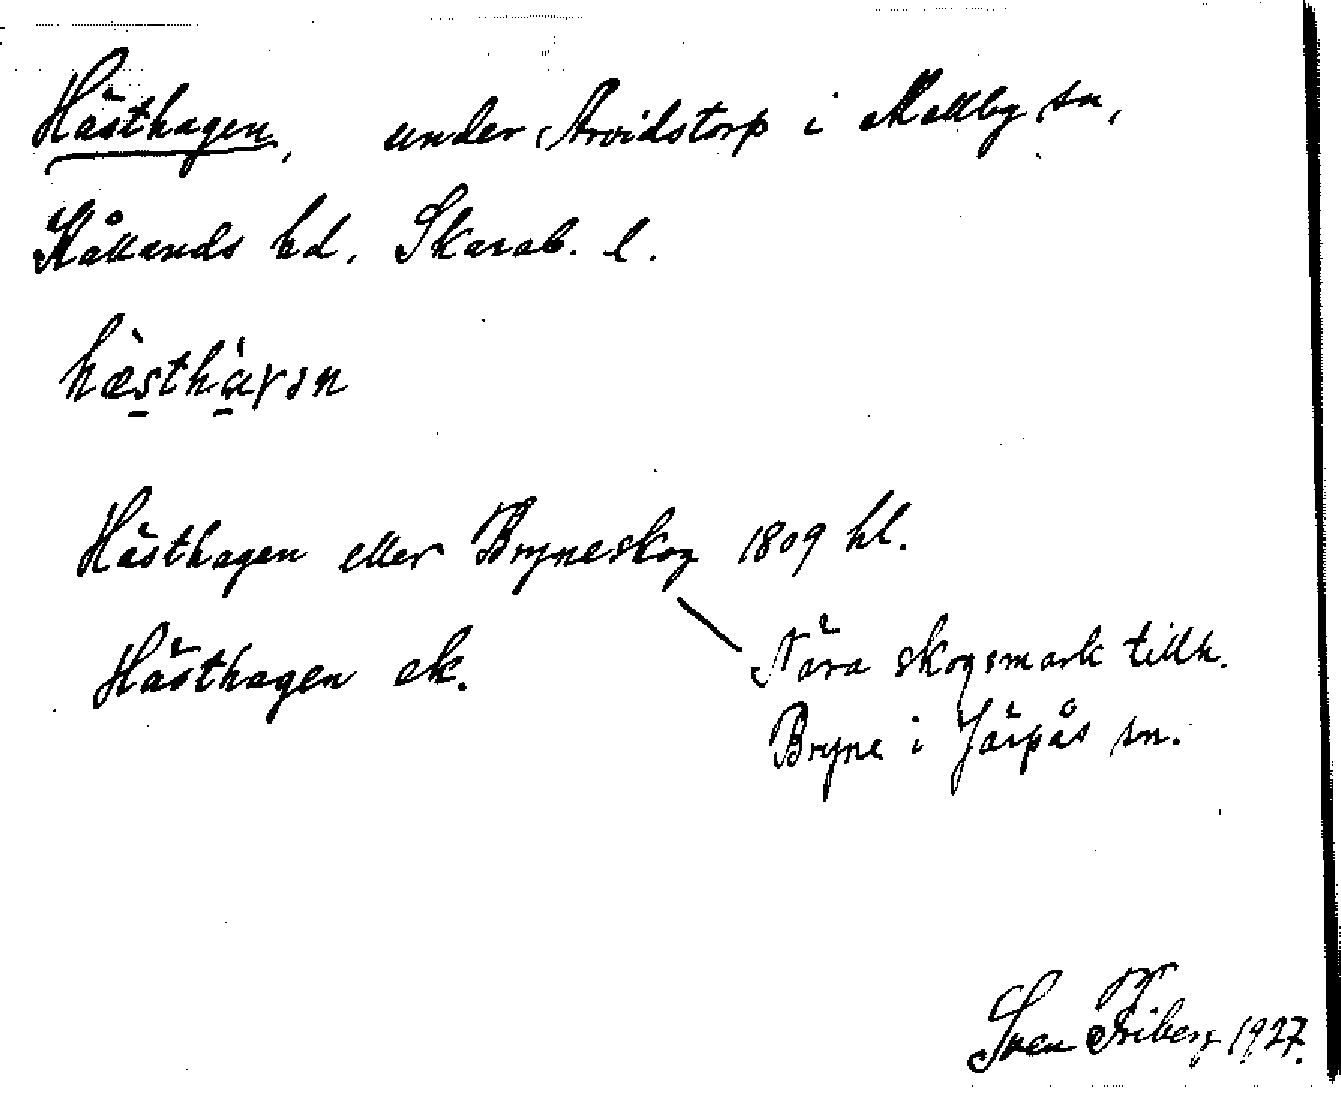 Hästhagen, under Arvidstorp i Mellby sn,
Kållands hd, Skarab. l.
hæ̀sthàɣən
Hästhagen eller Bryneskog 1809 hl.
Hästhagen ek.
Nära skogsmark tillh.
Bryne i Järpås sn.
Sven Friberg 1927.